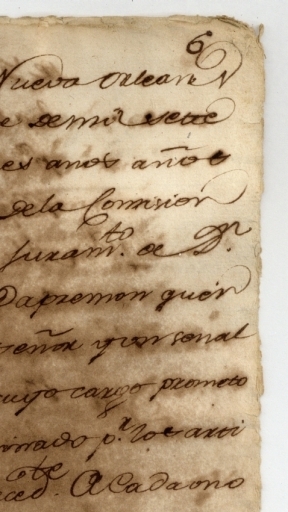 6
Nueva Orleans
de mil sete
es anos años
de la Comision
Juramto. de Dn.
Dapremon quien
señor y con señal
cuyo cargo prometo
pr. los arti
A Cada ono